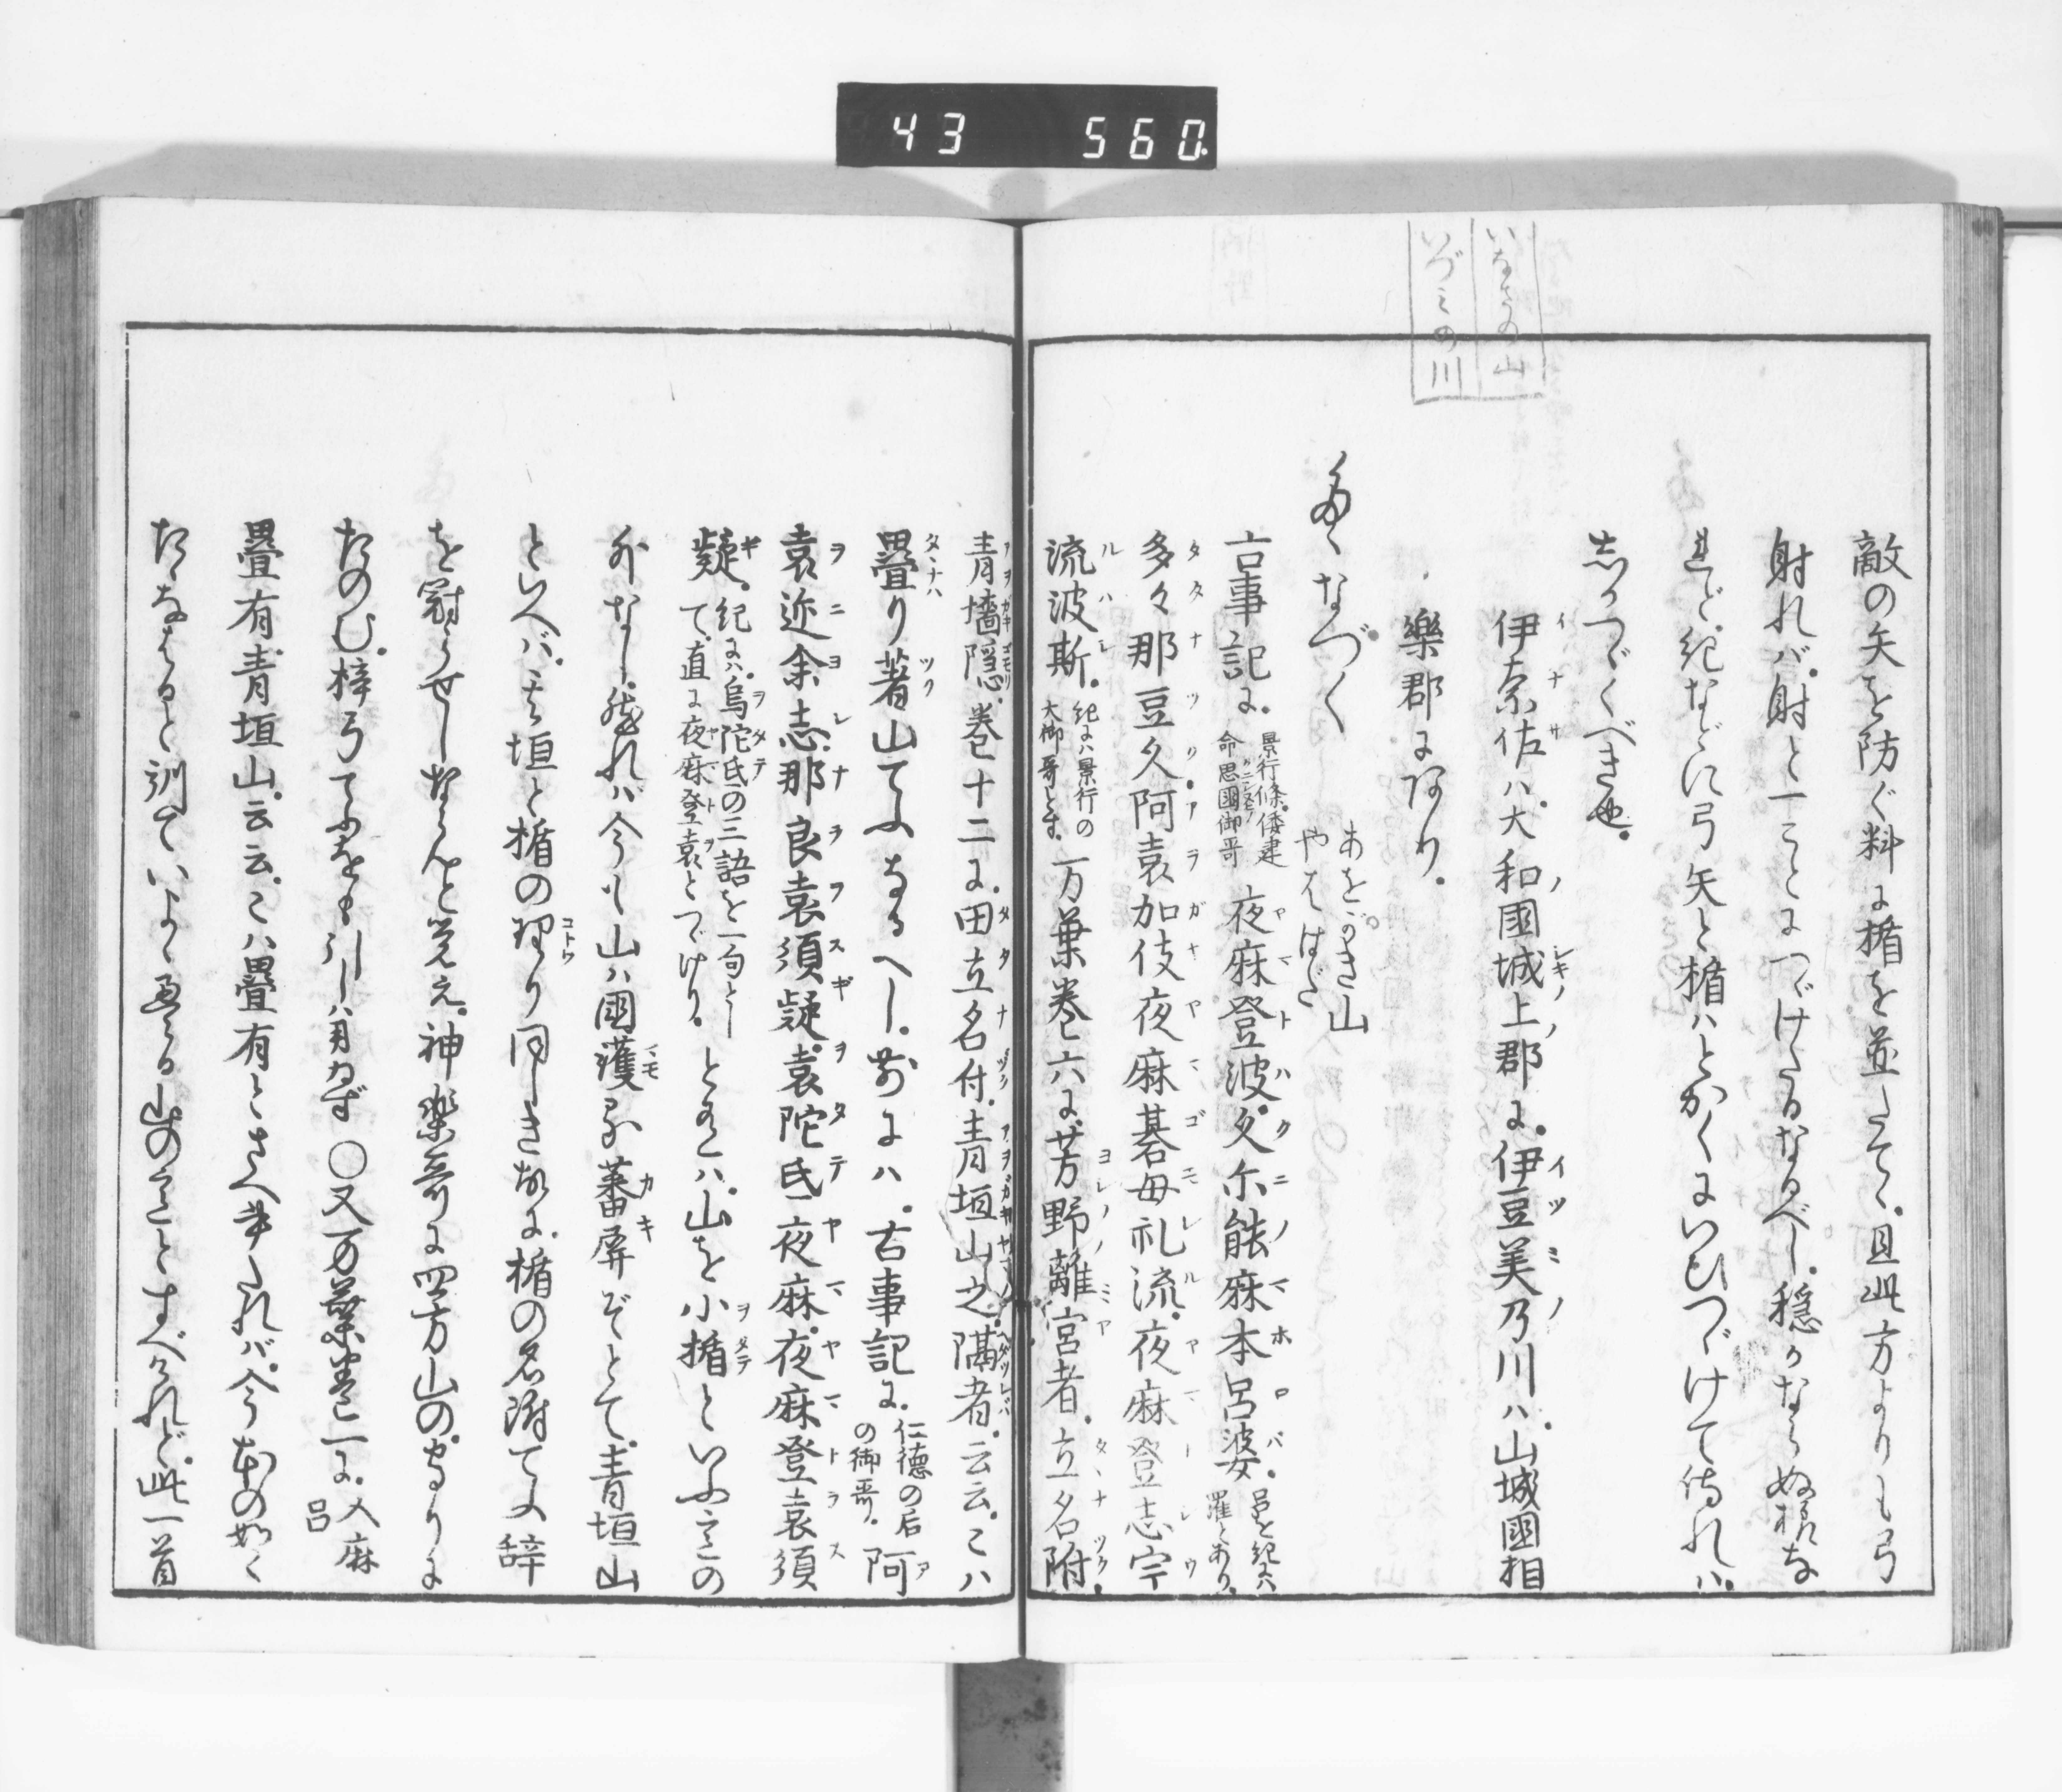 43 560.
いなさの山
いづミの川
敵の矢を防ぐ料に楯を並たてゝ且此方よりも弓
射れバ射と一ことにつゞけたるなるべし穏かならぬ様な
れど紀などに弓矢と楯ハとかくにいひつゞけて侍れハ
しかつゞくべき也
伊奈佐ハ大和國城上郡に伊豆美乃川ハ山城國相
樂郡にあり
たゝなづく あをがき山 やはゝだ
古事記に 景行條倭建命思國御哥 夜麻登波久尓能麻本呂婆 呂を紀にハ羅とあり
多々那豆久阿袁加伎夜麻碁母礼流夜麻登志宇
流波斯 紀にハ景行の大御哥とす 万葉巻六に芳野離宮者立名附
青墻隠巻十二に田立名付青垣山之隔者云云こハ
疊り著山てふなるへし前にハ古事記に 仁徳の后の御哥 阿
袁迩余志那良袁須疑袁陀氐夜麻夜麻登袁須
疑 紀にハ烏陀氐の三語を一句として直に夜麻登袁とつゞけり とあるハ山を小楯といふこの
外なし然れハ今も山ハ國護る蕃屏ぞとて青垣山
といへバ其垣と楯の理り同しき故に楯の名附てふ辞
を冠らせしならんと覚ゆ神楽哥に四方山の守りに
たのむ梓弓てふをも引しハ用わず〇又万葉巻二に 人麻呂
疊有青垣山云云こハ疊有とさへ書たれバ今本の如く
たゝなはると訓ていよゝ疊る山のことすべけれど此一首